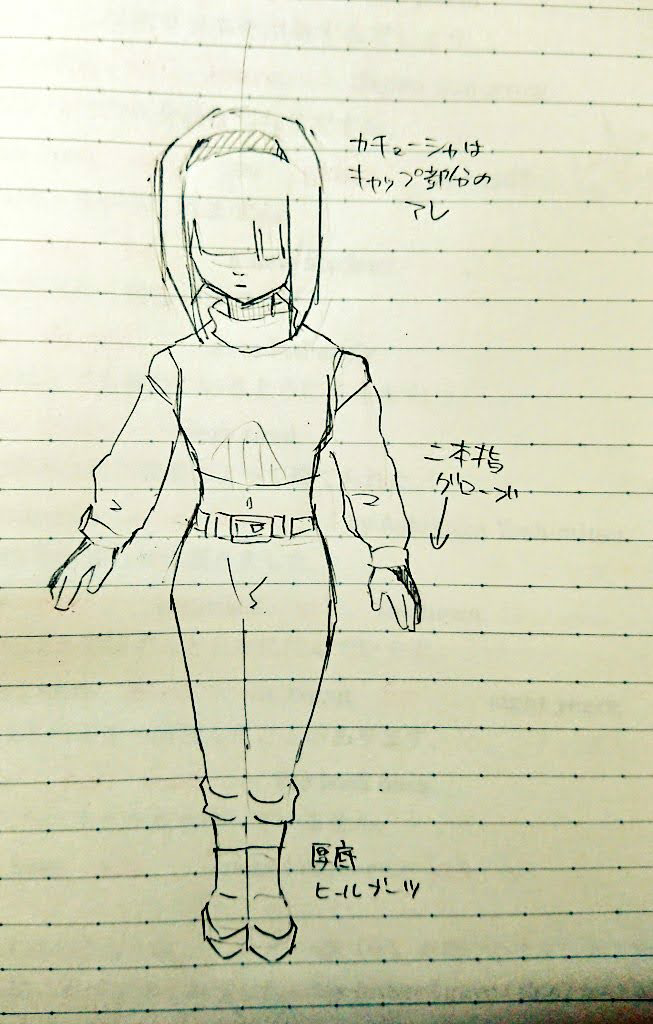 カチューシャは
キャップ部分の
アレ
二本指
グローブ
厚底
ヒールブーツ